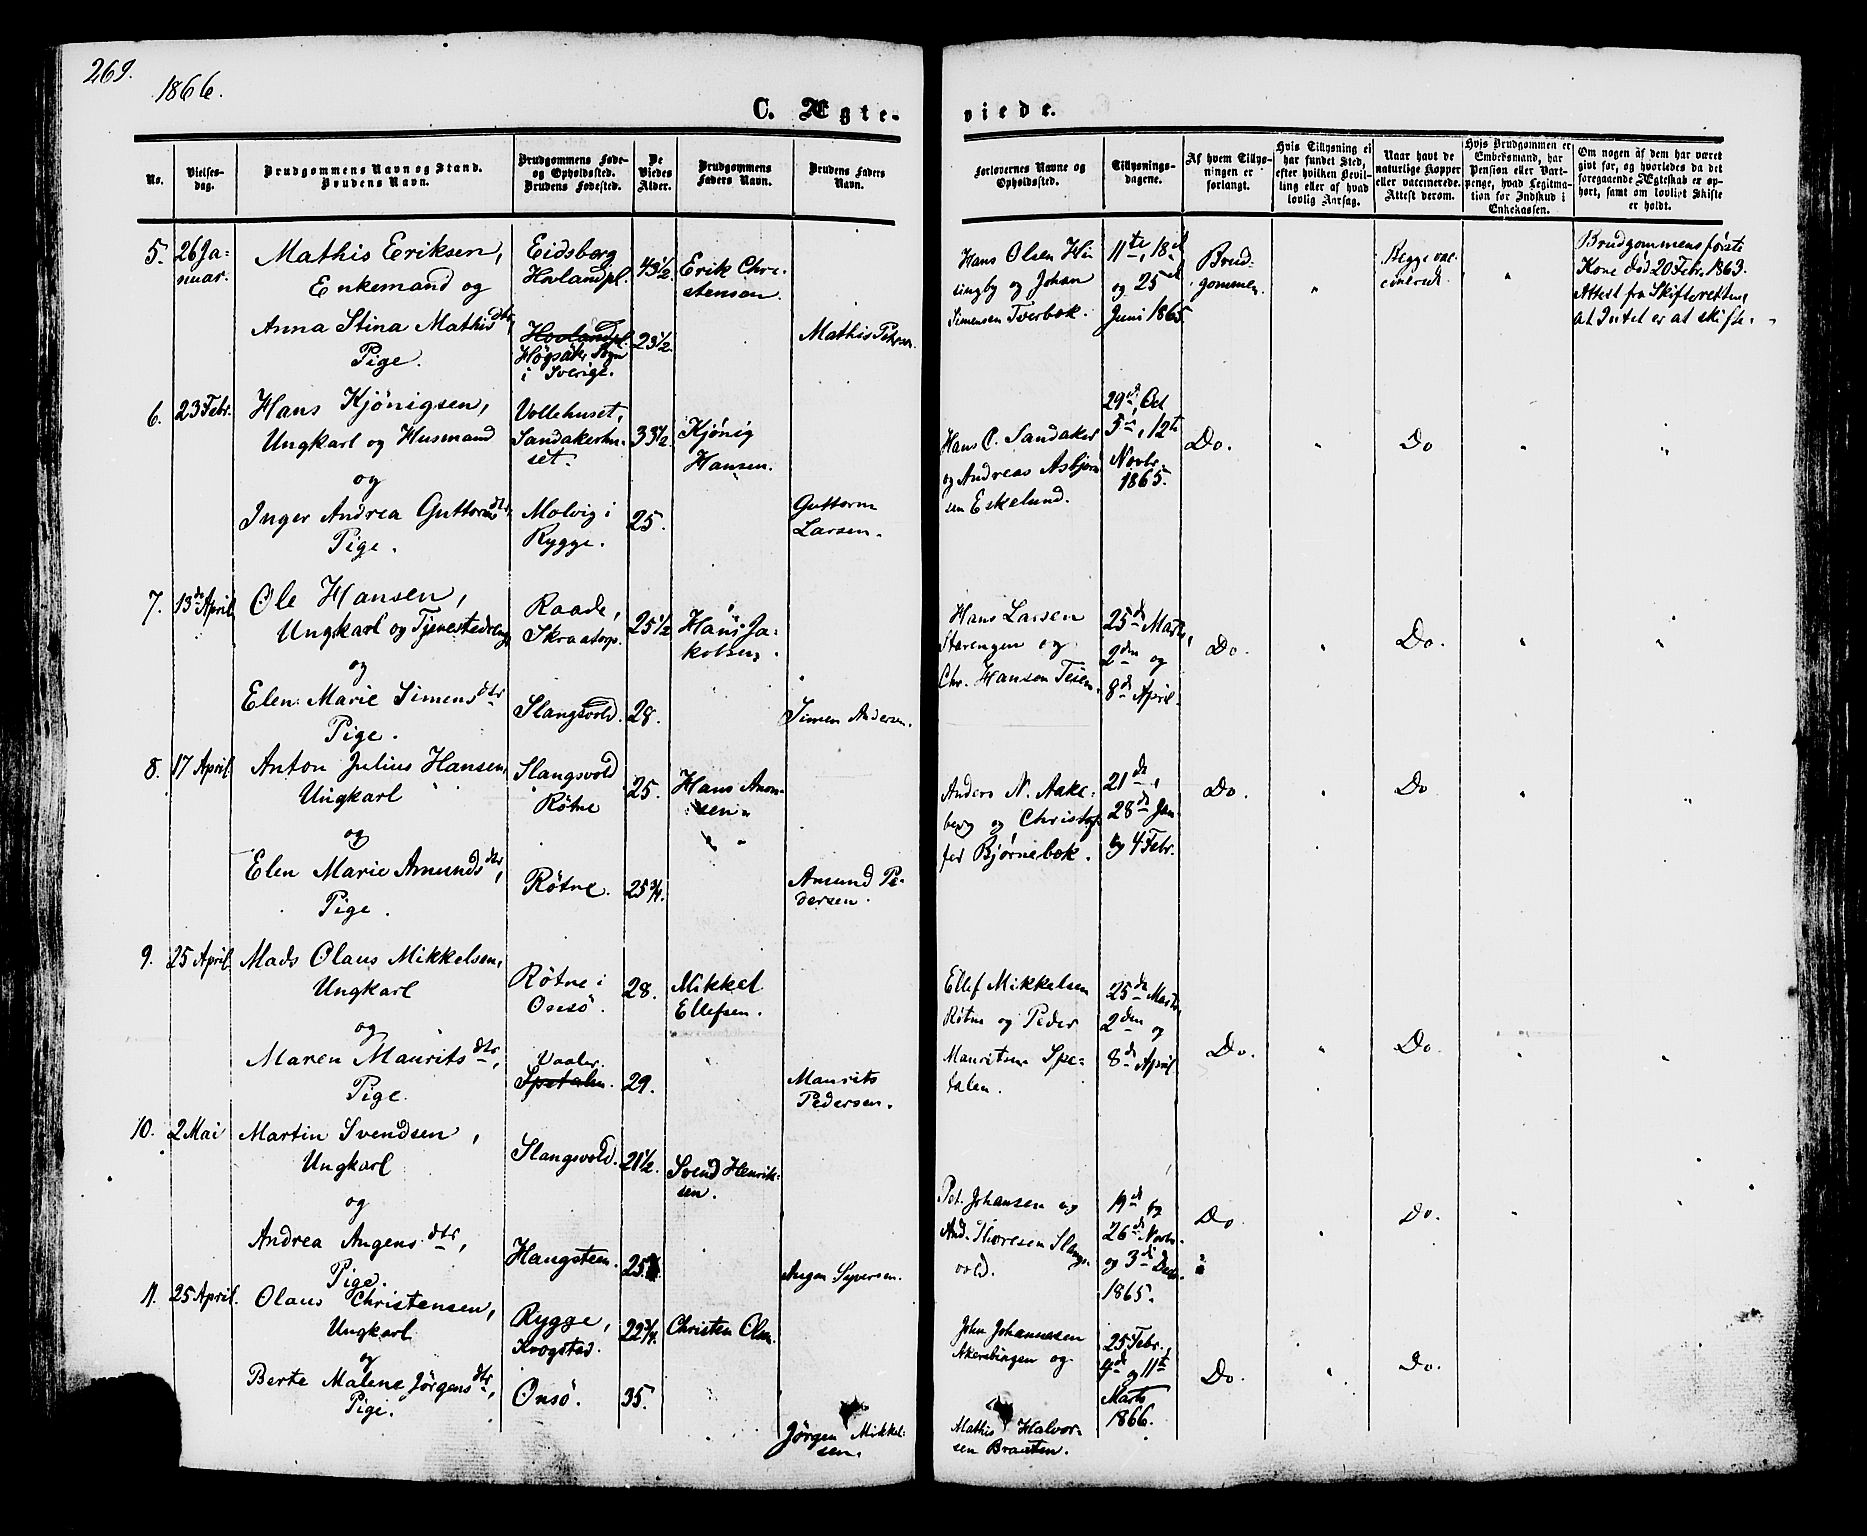 269.
1866.
C. Ægte- viede.
No.
Vielses-
dag.
Brudgommens Navn og Stand.
Brudens Navn.
Brudgommens Føde-
og Opholdssted.
Brudens Fødested.
De
Viedes
Alder.
Brudgommens
Faders Navn.
Brudens Faders
Navn.
Forlovernes Navne og
Opholdssted.
Tillysnings-
dagene.
Af hvem Tillys-
ningen er
forlangt.
Hvis Tillysning ei
har fundet Sted,
efter hvilken Bevil-
ling eller af hvad
lovlig Aarsag.
Naar havt de
naturlige Kopper
eller vaccinerede.
Attest derom.
Hvis Brudgommen er
Embedsmand, har
Pension eller Vart-
penge, hvad Legitima-
tion for Indskud i
Enkekassen.
Om nogen af dem har været
gift før, og hvorledes da det
foregaaende Ægteskab er op-
hørt, samt om lovligt Skifte
er holdt.
5. 26 Ja-
nuar.
Mathis Eriksen,
Enkemand og
Anna Stina Mathisdtr,
Pige.
Eidsberg
Hovlandpl.
Hovlandpl.
Högsäter Sogn
i Sverige.
43 1/2
23 1/2.
Erik Chri-
stensen.
Mathis
Hans Olsen
og Johan
Simensen Tverbæk.
11te, 18de
og 25de
Juni 1865.
Brud-
gommen.
"
Begge vac-
cinerede.
"
Brudgommens første
Kone død 20 Febr. 1863.
Attest fra Skifteretten,
at Intet er at skifte.
6. 23 Febr.
Hans Kjönigsen,
Ungkarl og Husmand
og
Inger Andrea Guttormsdtr,
Pige.
Vollehuset,
Sandakerhu-
set.
Molvig i
Rygge.
33 1/2.
25.
Kjönig
Hansen.
Guttorm
Larsen.
Hans C. Sandaker
og Andreas Asbjørn
sen Eskelund.
29de, Oct
5te, 12te
Novbr.
1865.
Do. " Do " "
7. 13de April
Ole Hansen,
Ungkarl og Tjenestedreng
og
Elen Marie Simensdtr
Pige.
Raade,
Skraatorp.
Slangsvold.
25 1/2
28.
Hans Ja-
kobsen.
Simen Andersen.
Hans Larsen
Starengen og
Chr. Hansen
25de Marts,
2den og
8de April.
Do. " Do. " "
8. 17 April
Anton Julius Hansen,
Ungkarl
og
Elen Marie Amundsdtr,
Pige.
Slangsvold
Røtne
Røtne.
25.
25 3/4.
Hans Amun-
sen.
" "
Amund Pe-
dersen.
Anders N. Aake-
berg og Christof-
fer Bjørnebæk.
21de,
28de Jan.
og 4 Febr.
Do. " Do " "
9. 25 April.
Mads Olaus Mikkelsen,
Ungkarl
og
Maren Mauritsdtr,
Pige.
Røtne i
Onsö.
Vaaler
Spetalen.
28.
29.
Mikkel
Ellefsen.
Maurits
Pedersen.
Ellef Mikkelsen
Røtne og Peder
Mauritsen Spe-
talen.
25de Marts,
2den og
8de April
Do. " Do. " "
10. 2 Mai
Martin Svendsen,
Ungkarl
og
Andrea Augensdtr,
Pige.
Slangsvold.
Haugsteen.
21 1/2.
25
Svend Henrik-
sen.
Augen Syversen.
Pet. Johansen og
And. Thoresen Slangs-
vold.
19de og
26de Novbr.
og 3de Decbr.
1865.
Do " Do. " "
11. 25 April.
Olaus Christensen,
Ungkarl
og
Berte Malene Jörgensdtr,
Pige.
Rygge,
Krogstad.
Onsö.
22 3/4.
35.
Christen Olsen.
Jörgen Mikkel-
sen.
John Johannesen
Akerebingen og
Mathis Halvor-
sen Braaten.
25 Febr.,
4de og 11te
Marts
1866.
Do. " Do.